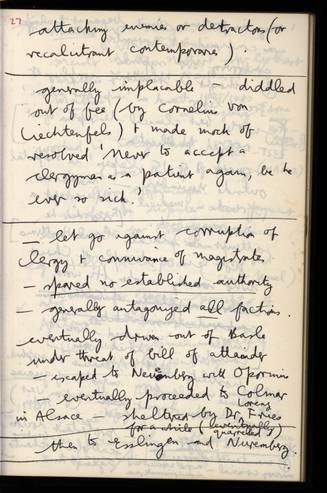 27
attacking enemies or detractors (or
recalcitrant contemporaries).
generally implacable – diddled
out of fee (by Cornelius von
Liechtenfels) & made mock of
resolved 'never to accept a
clergyman as a patient again, be he
ever so sick.'
— let go against corruption of
clergy & connivance of magistrates
— spared no established authority
— generally antagonised all factions.
eventually driven out of Basle
under threat of bill of attainder
— escaped to Neuenburg with Oporinus
— eventually proceeded to Colmar
in Alsace – sheltered by Dr Lorenz Fries
for a while (eventually quarreled)
then to Esslingen and Nuremberg.